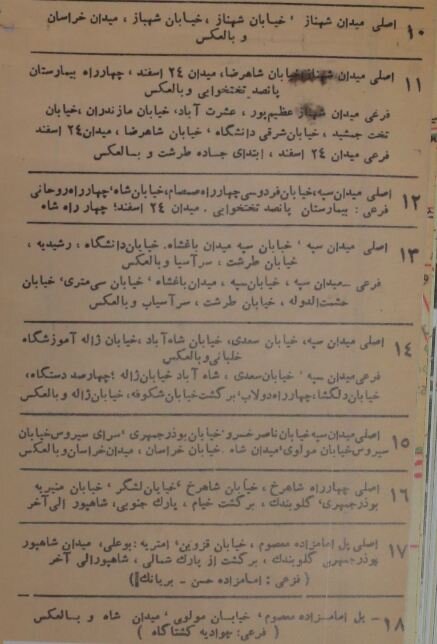 ۱۰ اصلی میدان شهناز ' خیابان شهناز ، خیابان شهباز ، میدان خراسان
و بالعکس
۱۱ اصلی میدان شهناز خیابان شاهرضا، میدان ۲۴ اسفند ، چهارراه بیمارستان
پانصد تختخوابی وبالعکس
فرعی میدان شهناز عظیم‌پور ، عشرت آباد، خیابان مازندران ،خیابان
تخت جمشید ، خیابان‌شرقی دانشگاه ' خیابان شاهرضا ، میدان ۲۴ اسفند
فرعی میدان ۲۴ اسفند ، ابتدای جاده طرشت و بسالعکس
۱۲ اصلی میدان‌سپه،خیابان‌فردوسی‌چهارراه‌صمصام،خیابان‌شاه'چهارراه‌روحانی
فرعی : بیمارستان پانصد تختخوابی . میدان ۲۴ اسفند؛ چهار راه شاه
۱۳ اصلی میدان سپه ' خیابان سپه میدان باغشاه. خیابان‌دانشگاه ، رشیدیه ،
خیابان طرشت ، سرآسیا وبالعکس
فرعی _میدان سپه ، خیابان‌سپه ، میدان‌باغشاه ' خیابان سی‌متری' خیابان
حشمت‌الدوله ، خیابان طرشت ، سرآسیاب وبالعکس
۱۴ اصلی میدان سپه، خیابان سعدی، خیابان شاه‌آباد ،خیابان ژاله آموزشگاه
خلبانی‌وبالعکس
فرعی میدان سپه ' خیابان‌سعدی ، شاه آباد خیابان‌ژاله ؛چهارصد دستگاه،
خیابان‌دلگشا،چهارراه‌دولاب'برگشت‌خیابان‌شکوفه، خیابان‌ژاله وبالعکس
۱۵ اصلی‌میدان‌سپه‌خیابان‌ناصرخسرو'خیابان‌بوذرجمهری 'سرای سیروس‌خیابان
سیروس‌خیابان مولوی'میدان شاه .خیابان خراسان ، میدان‌خراسان‌وبالعکس
۱۶ اصلی چهارراه شاهرخ ، خیابان شاهرخ 'خیابان‌لشگر ' خیابان منیریه
بوذرجمهری' گلوبندک ، برگشت خیام ، پارک جنوبی، شاهپور الی‌آخر
۱۷ اصلی پل امامزاده معصوم ، خیابان قزوین' امیریه :بوعلی، میدان شاهپور
بوذرجمهری گلوبندک ، برگشت از پارک شمالی ، شاهپورالی آخر
( فرعی : امامزاده حسن - بریانک )
۱۸ - پل امامزاده معصوم، خیابسان مولوی' میدان شاه و بسالعکس
( فرعی: جوادیه کشتاگاه )